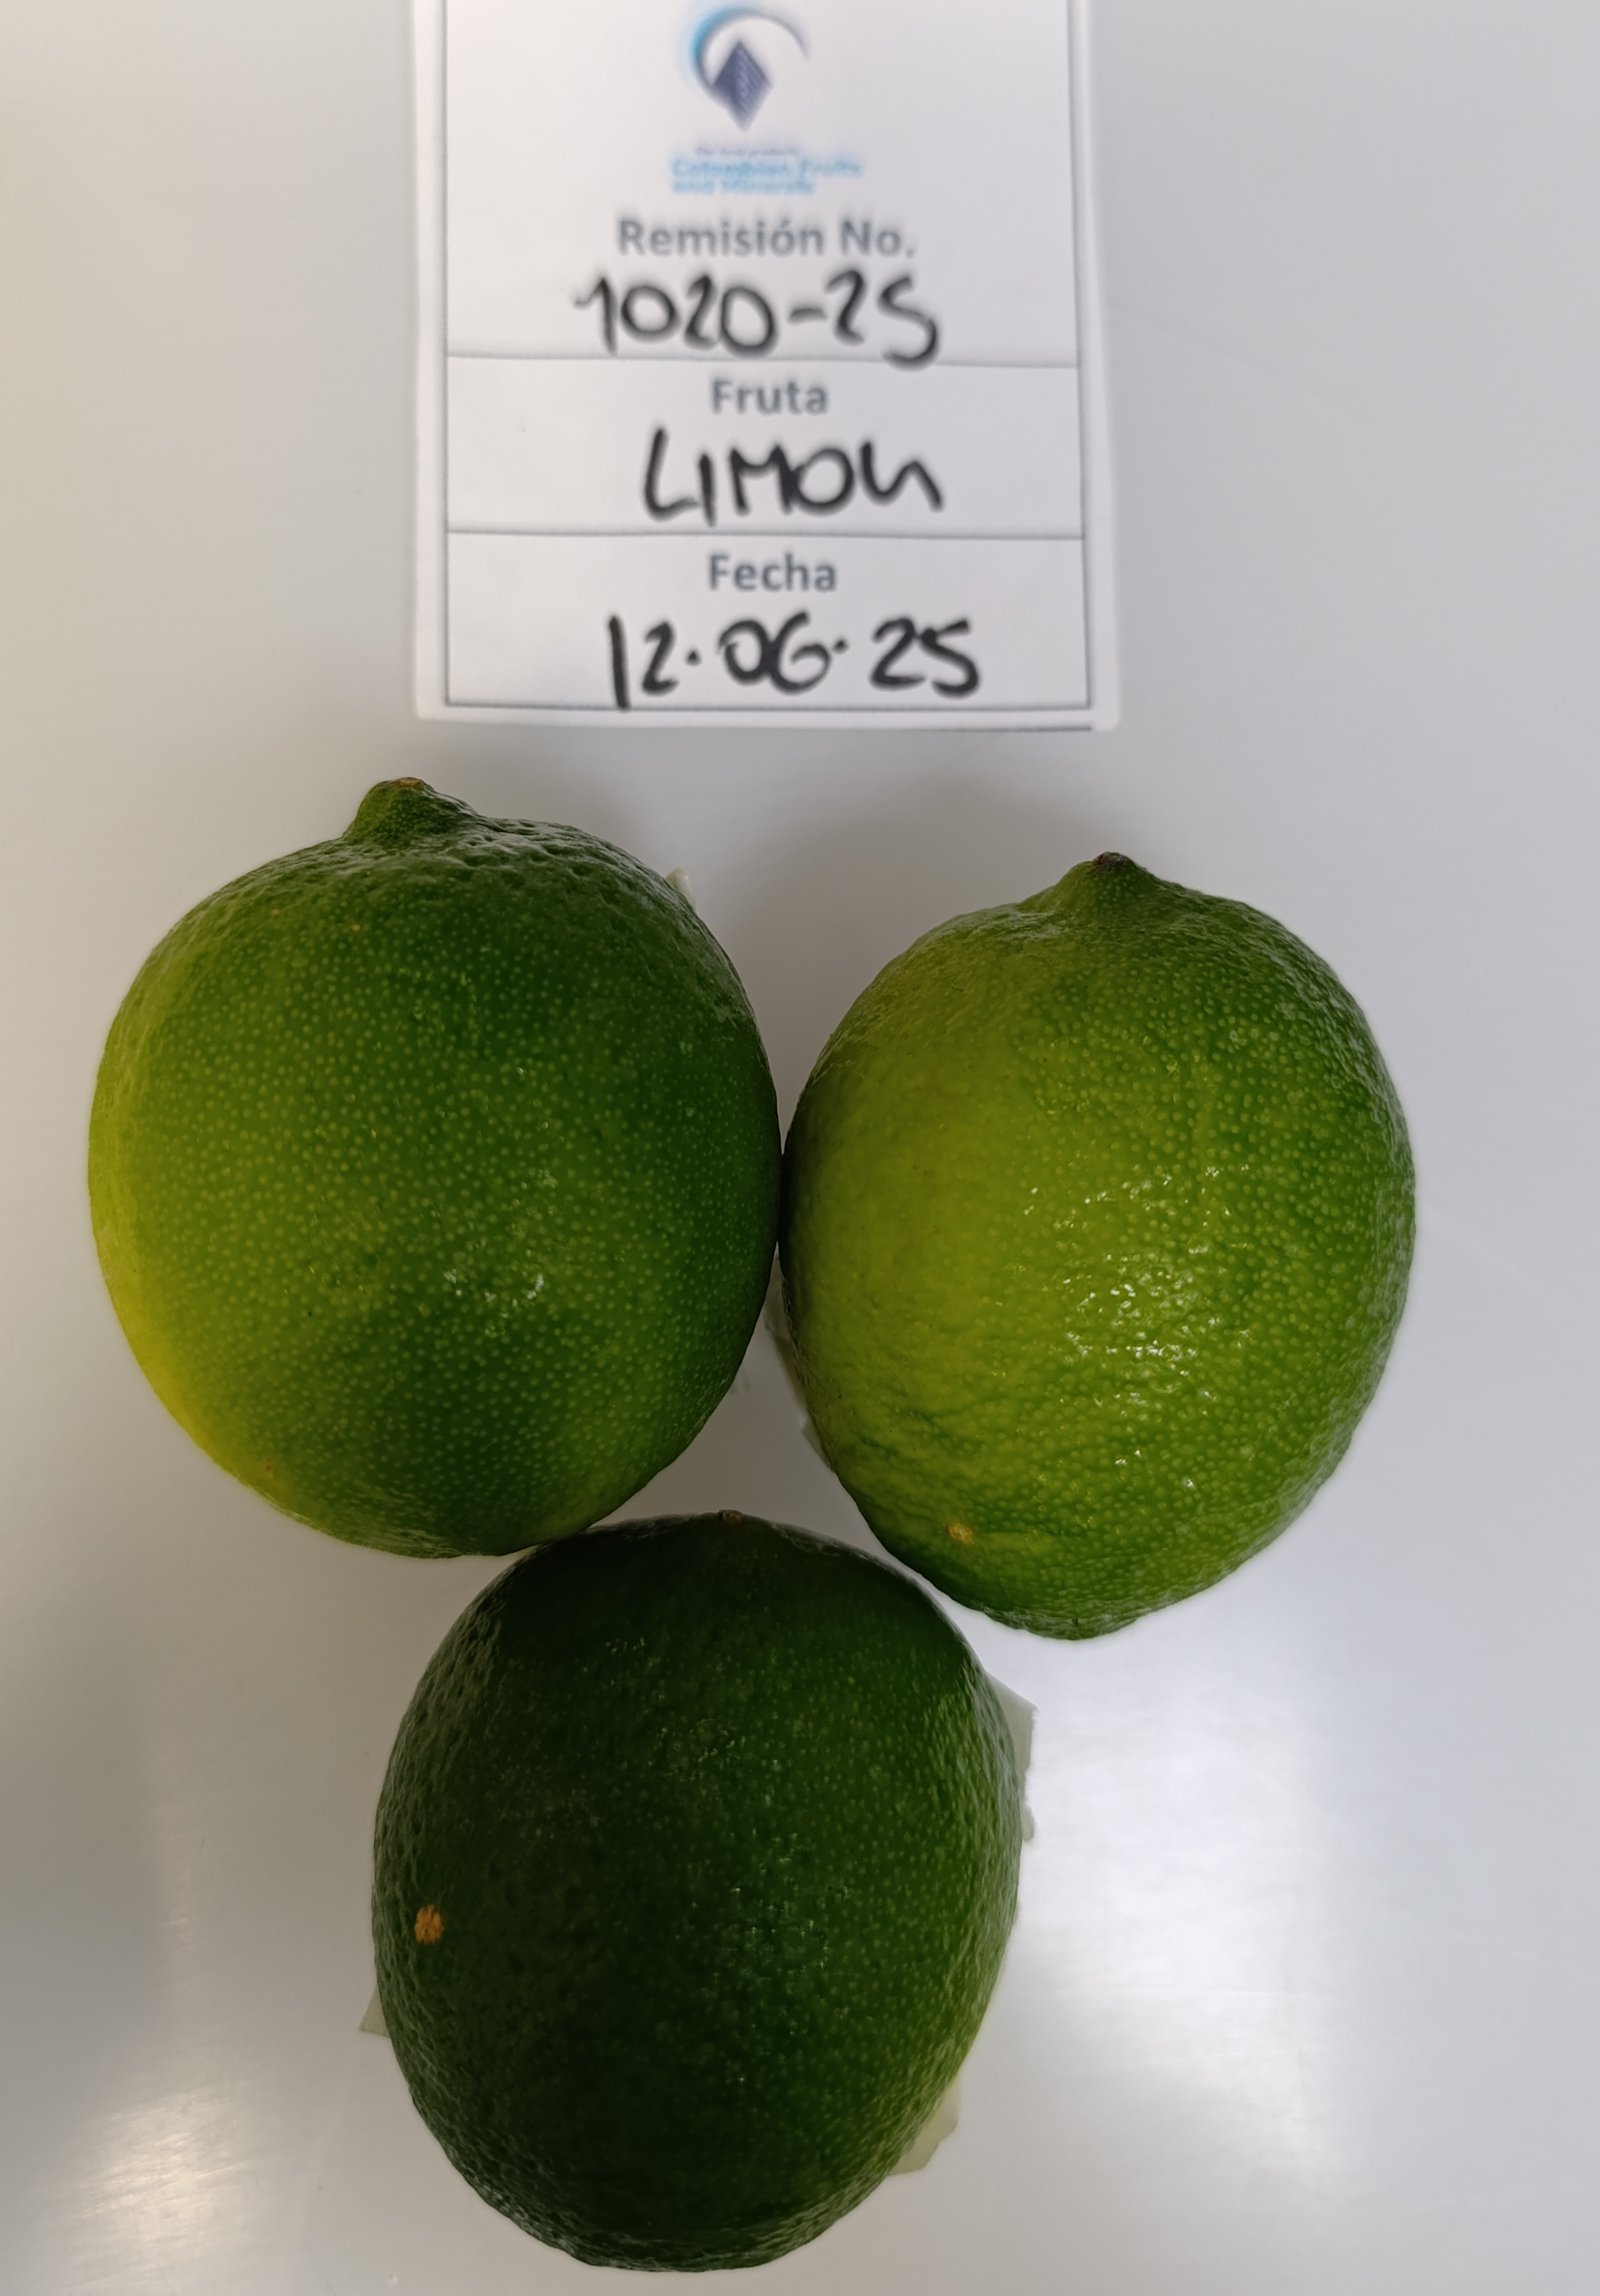 Colombian Fruits
and Minerals
Remisión No.
1020-25
Fruta
LIMON
Fecha
12·06·25